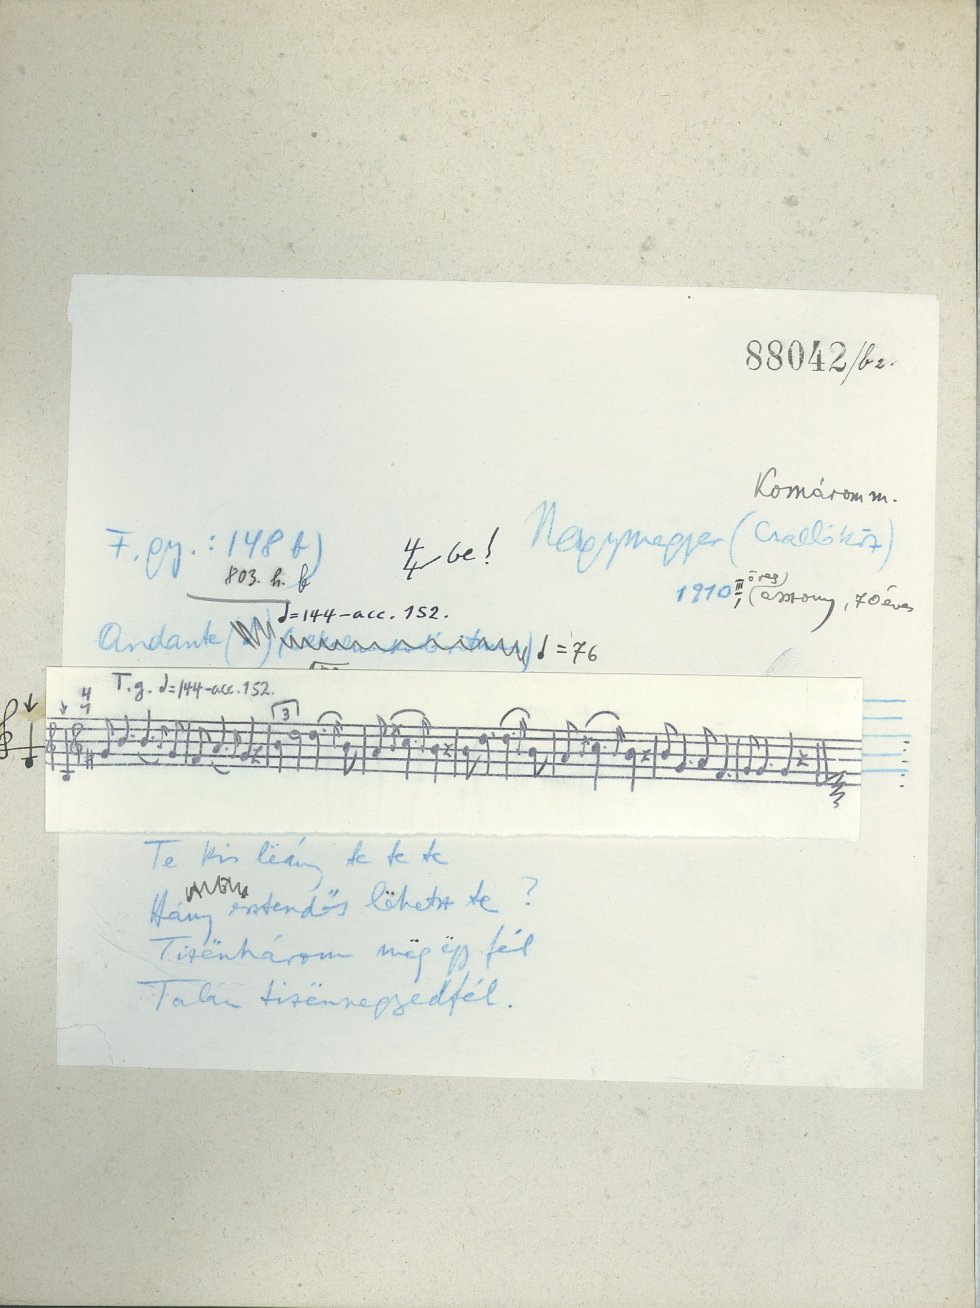 88042/b2.
Komárom m.
F. gy.: 148 b)
4/4 be!
Nagymegyer (Csallóköz)
803. h. b
1910 III, (öreg asszony, 70 éves
♩=144-acc. 152.
Andante
♩=76
T.g. ♩=144-acc. 152.
4
4
3
Te kis leány te te te
Hány esztendős lëhetsz te?
Tizënhárom mëg ëgy fél
Talán tizënnegyedfél.